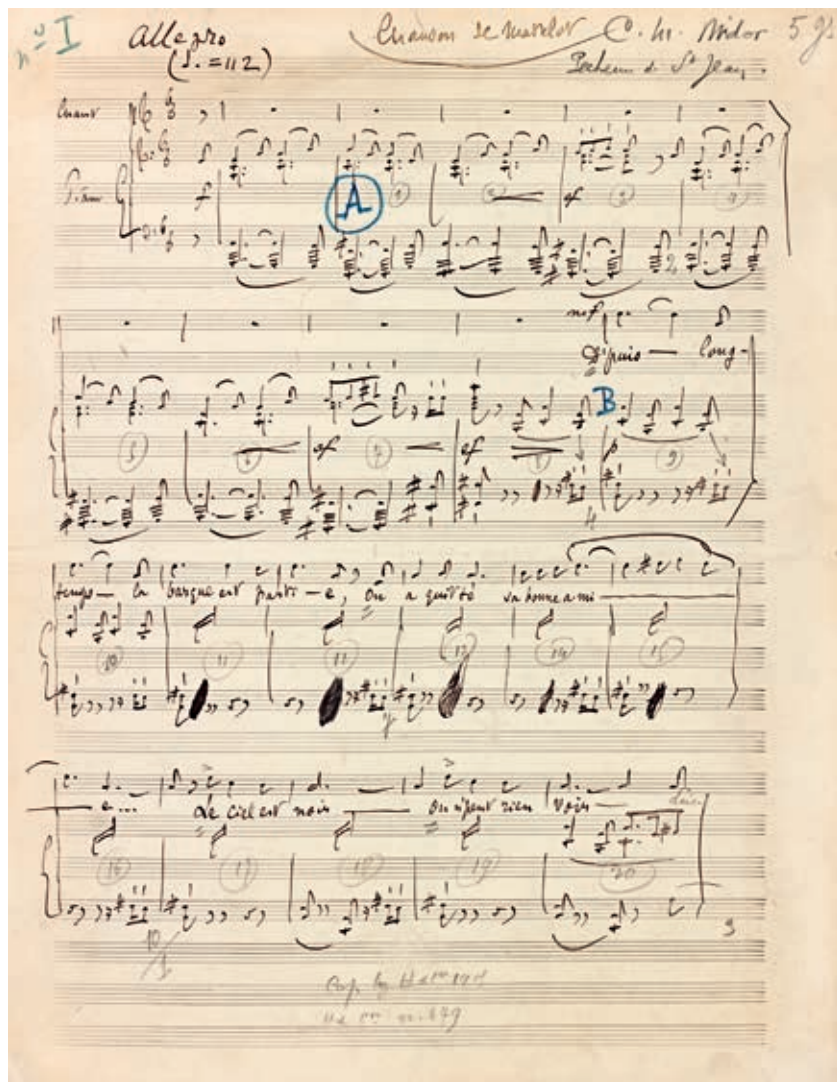 nº I Allegro Chanson de matelot C. M. Widor 5
(♩. = 112) Pecheurs de St Jean.
Chant
Piano f
A
1 sf 4
2
mf
D'puis — long-
B
5 6 sf 7 sf 8 p 9
4
temps — la barque est parti - e, On a quitté sa bonne ami —
10 11 11 14 15
— e... Le ciel est noir — On n'peut rien voir —
16 17 18 19 20
10